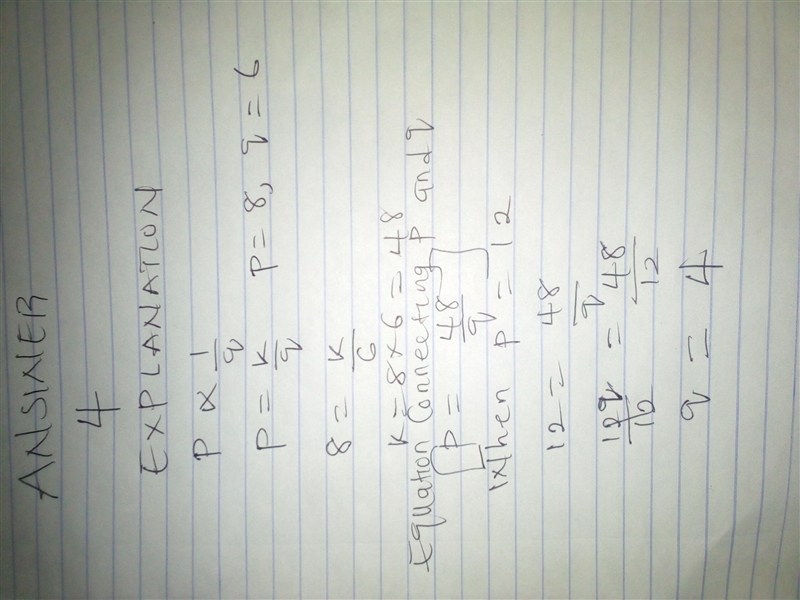 ANSWER
4
EXPLANATION
P ∝ 1/q
P = K/q P = 8, q = 6
8 = K/6
K = 8 x 6 = 48
Equation Connecting P and q
P = 48/q
When P = 12
12 = 48/q
12q/12 = 48/12
q = 4